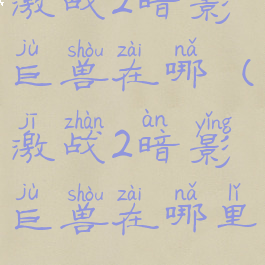 激战2暗影
jù shòu zài nǎ
巨兽在哪(
jī zhàn àn yǐng
激战2暗影
jù shòu zài nǎ lǐ
巨兽在哪里